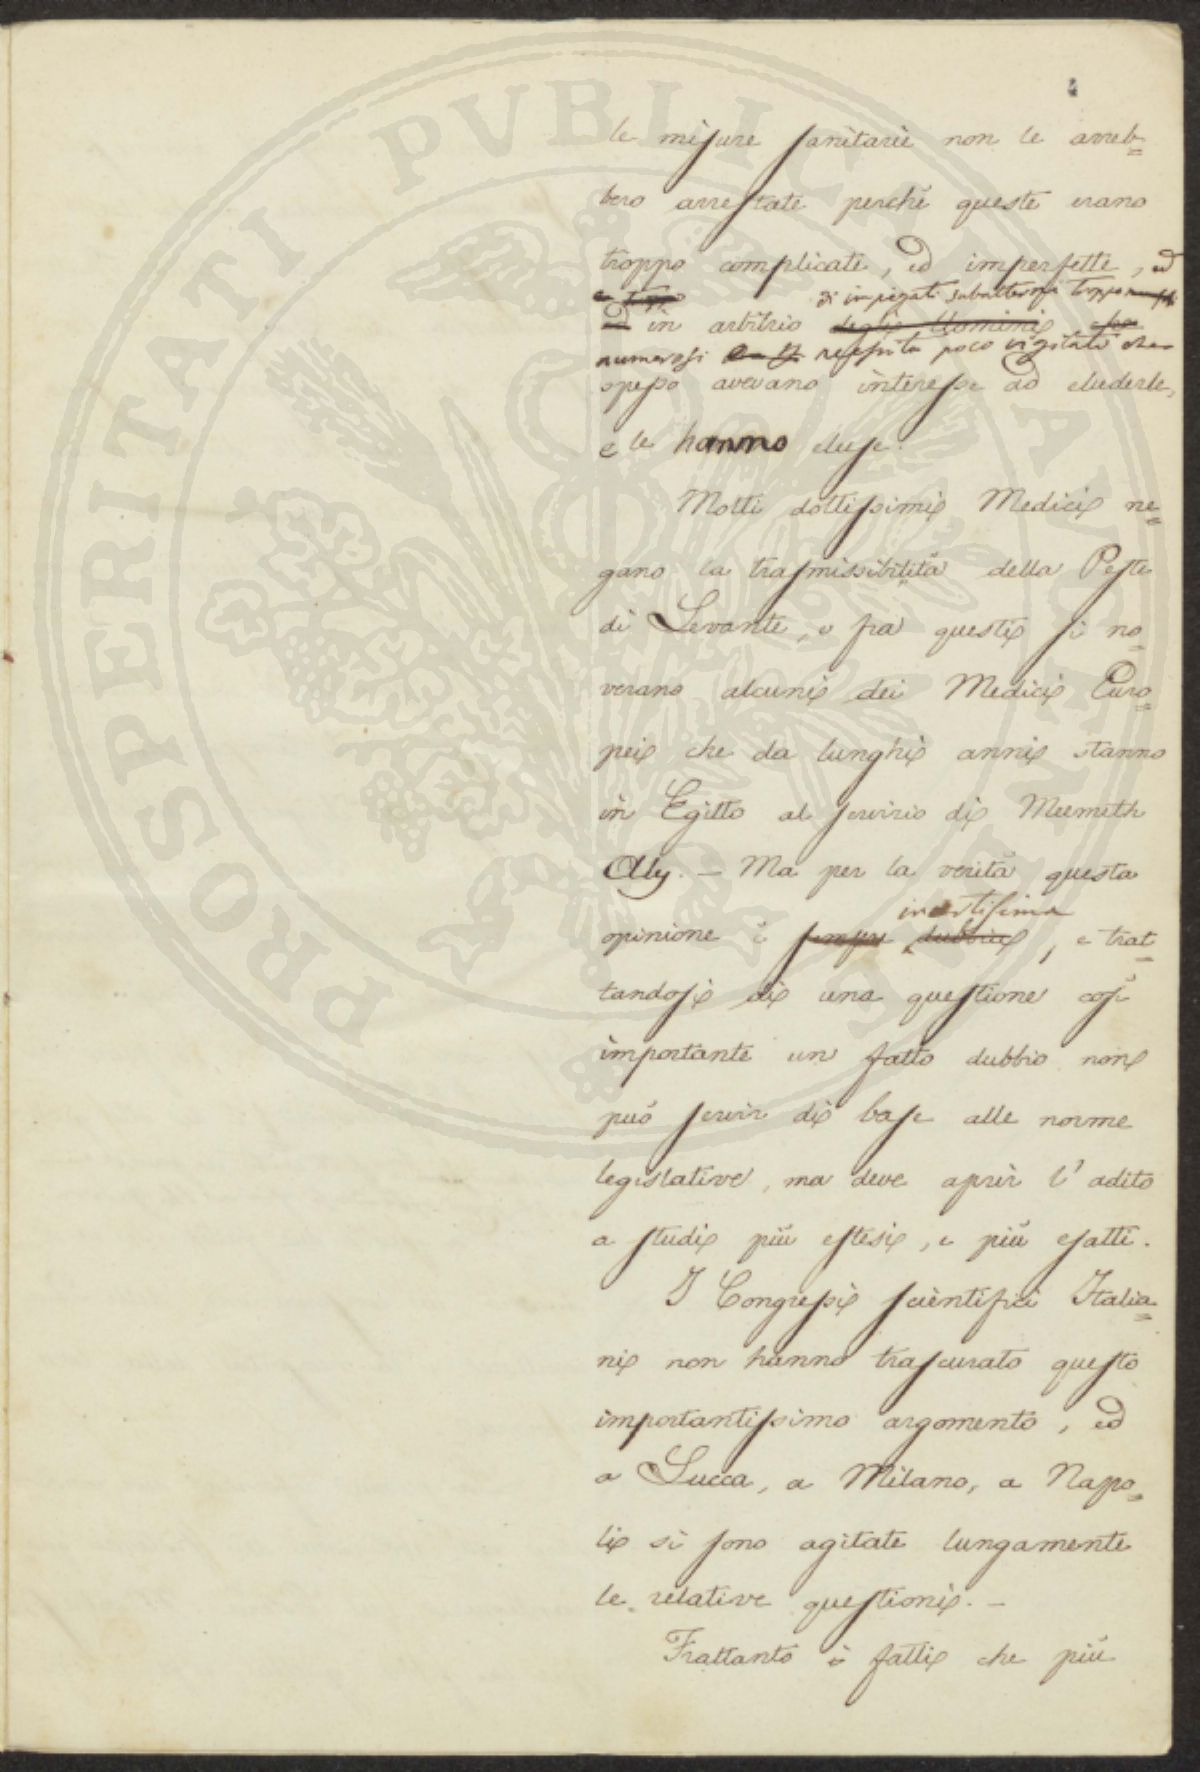 4
PROSPERITATI PVBLICAE AVGENDAE
le misure sanitarie non le avreb=
bero arrestate perchè queste erano
troppo complicate, ed imperfette, ed
di impiegati subalterni troppo
in arbitrio degli Uomini che
numerosi necessita poco vigilati che
spesso avevano interesse ad eluderle,
e le hanno eluse.
Molti dottissimi Medici ne=
gano la trasmissibilità della Peste
di Levante, e fra questi si no=
verano alcuni dei Medici Euro=
pei che da lunghi anni stanno
in Egitto al servizio di Meemeth
Aly. — Ma per la verità questa
incertissima
opinione è sempre dubbia, e trat=
tandosi di una questione così
importante un fatto dubbio non
può servir di base alle norme
legislative, ma deve aprir l'adito
a studi più estesi, e più esatti.
I Congressi scientifici Italia=
ni non hanno trascurato questo
importantissimo argomento, ed
a Lucca, a Milano, a Napo=
li si sono agitate lungamente
le relative questioni. —
Frattanto i fatti che più